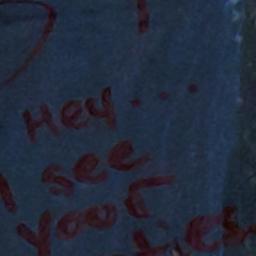 Hey...
I see
your